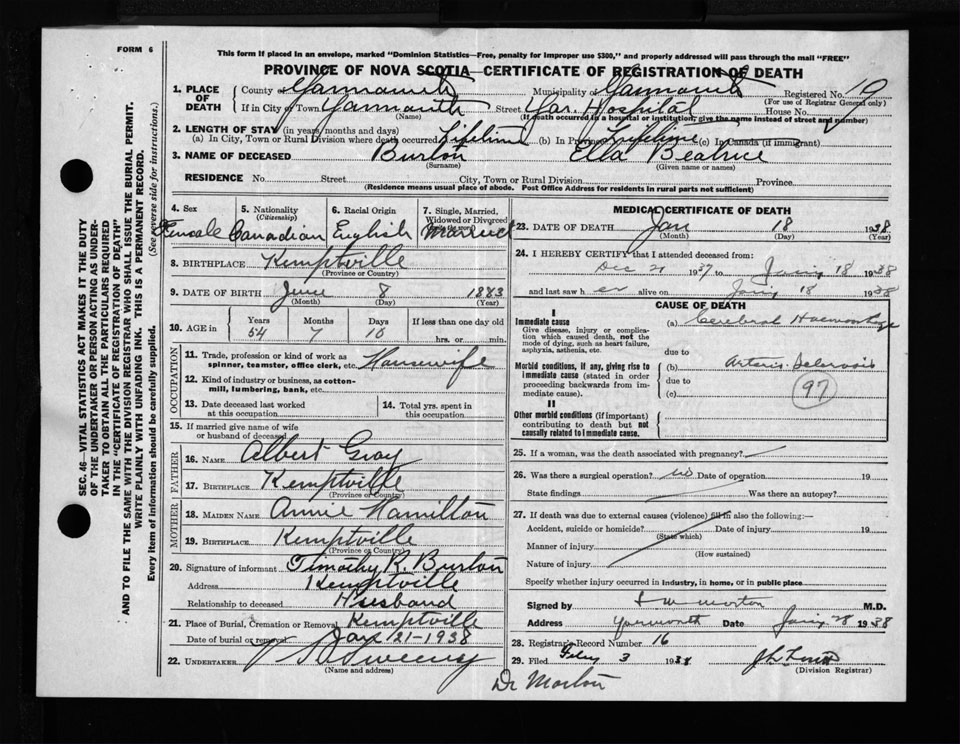 FORM 6
This form if placed in an envelope, marked "Dominion Statistics—Free, penalty for improper use $300," and properly addressed will pass through the mail "FREE"
PROVINCE OF NOVA SCOTIA—CERTIFICATE OF REGISTRATION OF DEATH
1. PLACE OF DEATH
County of Yarmouth Municipality of Yarmouth Registered No. 19
(For use of Registrar General only)
If in City or Town Yarmouth Street Yar. Hospital House No.
(Name) (If death occurred in a hospital or institution, give the name instead of street and number)
2. LENGTH OF STAY (in years, months and days)
(a) In City, Town or Rural Division where death occurred Lifetime (b) In Province Lifetime (c) In Canada (if immigrant)
3. NAME OF DECEASED Burton Ella Beatrice
(Surname) (Given name or names)
RESIDENCE No. Street City, Town or Rural Division Province
(Residence means usual place of abode. Post Office Address for residents in rural parts not sufficient)
4. Sex 5. Nationality (Citizenship) 6. Racial Origin 7. Single, Married, Widowed or Divorced
Female Canadian English Married
8. BIRTHPLACE Kemptville
(Province or Country)
9. DATE OF BIRTH June 8 1883
(Month) (Day) (Year)
10. AGE in Years Months Days If less than one day old
54 7 10 hrs. or min.
OCCUPATION
11. Trade, profession or kind of work as spinner, teamster, office clerk, etc. Housewife
12. Kind of industry or business, as cotton-mill, lumbering, bank, etc.
13. Date deceased last worked at this occupation
14. Total yrs. spent in this occupation
15. If married give name of wife or husband of deceased
FATHER
16. NAME Albert Gray
17. BIRTHPLACE Kemptville
(Province or Country)
MOTHER
18. MAIDEN NAME Annie Hamilton
19. BIRTHPLACE Kemptville
(Province or Country)
20. Signature of informant Timothy R. Burton
Address Kemptville
Relationship to deceased Husband
21. Place of Burial, Cremation or Removal Kemptville
Date of burial or removal Jan 21-1938
22. UNDERTAKER Sweeny
(Name and address)
MEDICAL CERTIFICATE OF DEATH
23. DATE OF DEATH Jan 18 1938
(Month) (Day) (Year)
24. I HEREBY CERTIFY that I attended deceased from:
Dec 21 1937 to 18 1938
and last saw h er alive on 18 1938
CAUSE OF DEATH
I
Immediate cause (a) Cerebral Haemorrhage
Give disease, injury or complication which caused death, not the mode of dying, such as heart failure, asphyxia, asthenia, etc.
due to
Morbid conditions, if any, giving rise to immediate cause (stated in order proceeding backwards from immediate cause).
(b)
due to
(c) 97
II
Other morbid conditions (if important) contributing to death but not causally related to immediate cause.
25. If a woman, was the death associated with pregnancy?
26. Was there a surgical operation? no Date of operation 19
State findings Was there an autopsy?
27. If death was due to external causes (violence) fill in also the following:—
Accident, suicide or homicide? Date of injury 19
(State which)
Manner of injury
(How sustained)
Nature of injury
Specify whether injury occurred in industry, in home, or in public place
Signed by Morton M.D.
Address Yarmouth Date 28 1938
28. Registrar's Record Number 16
29. Filed Feby 3 1938
(Division Registrar)
Dr Morton
SEC. 46—VITAL STATISTICS ACT MAKES IT THE DUTY
OF THE UNDERTAKER OR PERSON ACTING AS UNDER-
TAKER TO OBTAIN ALL THE PARTICULARS REQUIRED
IN THE "CERTIFICATE OF REGISTRATION OF DEATH"
AND TO FILE THE SAME WITH THE DIVISION REGISTRAR WHO SHALL ISSUE THE BURIAL PERMIT.
WRITE PLAINLY WITH UNFADING INK. THIS IS A PERMANENT RECORD.
Every item of information should be carefully supplied. (See reverse side for instructions.)